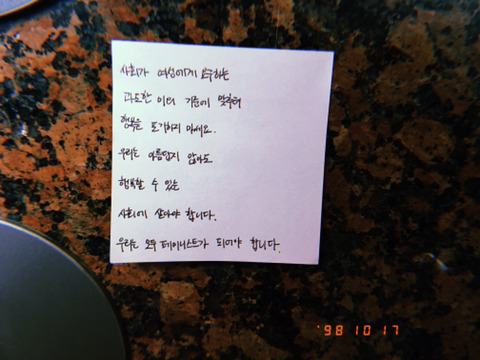 사회가 여성에게 요구하는
과도한 미의 기준에 맞춰
행복을 포기하지 마세요.
우리는 아름답지 않아도
행복할 수 있는
사회에 살아야 합니다.
우리는 모두 페미니스트가 되어야 합니다.
'98 10 17